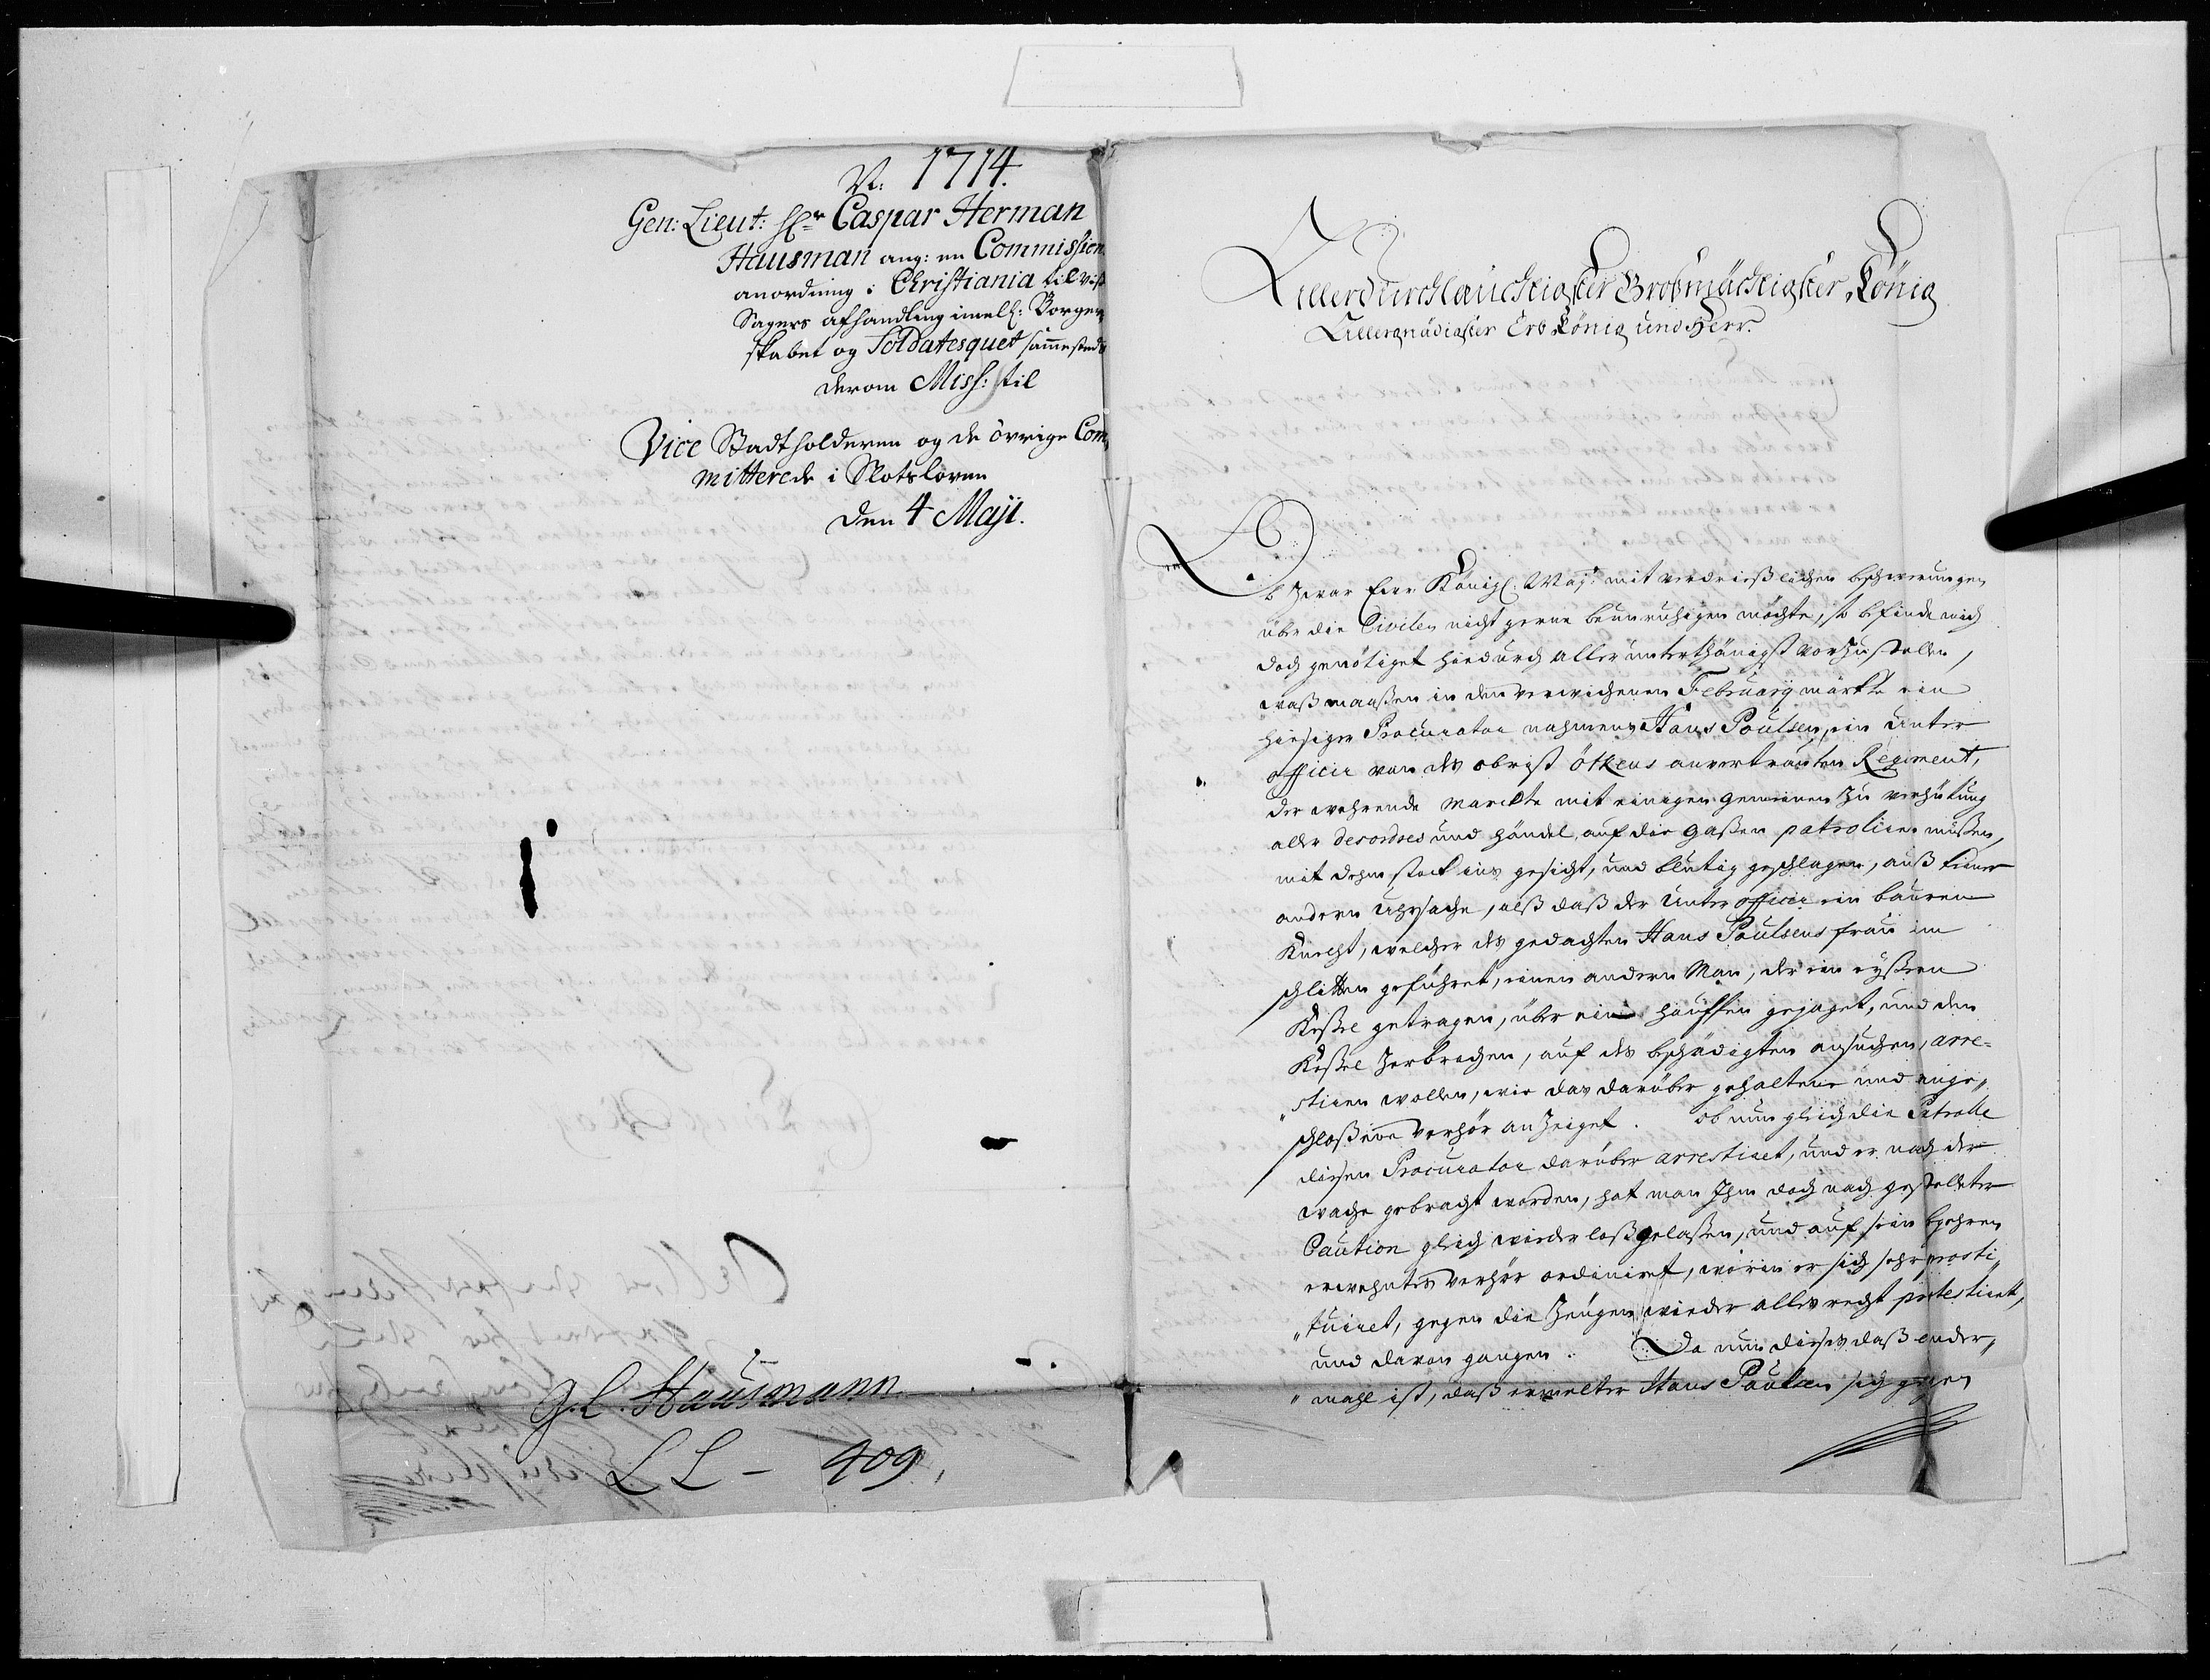 A: 1714.
Gen: Lieut: Hr Caspar Herman
Hausman ang: en Commission
anordning i Christiania til viss
Sagers afhandling imell: Borger
skabet og Soldatesquet sammesteds
derom Miss: til
Vice Stadtholderen og de övrige Com
mitterede i Slotsloven
den 4 Maji.
G. L. Hausmann
LL - 409,
Allerdurchlauchtigster Grosmächtigster König
Allergnädigster Erb König und Herr.
Ob zwar Eur Königl: Maj: mit verdrießlichen beschwerungen
über die Civilen nicht gerne beunruhigen möchte, so befinde mich
doch genötiget hiedurch aller unterthänigst vorzustellen,
was maaßen in den verwichenen Februarij märkte ein
hiesiger Procurator nahmens Hans Poulsen, ein Unter
officir von des obrist Ötkens anvertrauten Regiment,
der wehrende Marckte mit einigen gemeinen zu verhütung
aller desordres und händel, auf die gaßen patroliren müßen,
mit dehm stock ins gesicht, und blutig geschlagen, auß keiner
andern Uhrsache, alß daß der Unter officir ein bauren
Knecht, welcher des gedachten Hans Poulsens frau im
schlitten geführet, einen andern Man, der ein eyßern
Keßel getragen, über ein hauffen gejaget, und den
Keßel zerbrochen, auf des beschädigten ansuchen, arre-
„stiren wollen, wie das darüber gehaltene und einge„
schloßene verhör anzeiget. ob nun gleich die Patrolle
diesen Procurator darüber arrestiret, und er nach der
wache gebracht worden, hat man Ihm doch nach gestellter
Caution gleich wieder loßgelaßen, und auf sein begehren
erwehntes verhör ordiniret, worin er sich sehr prosti„
„tuiret, gegen die Zeugen wieder alles recht protestiret,
und davon gangen. Da nun dieses daß ander„
„mahl ist, daß ermelter Hans Poulsen sich gegen